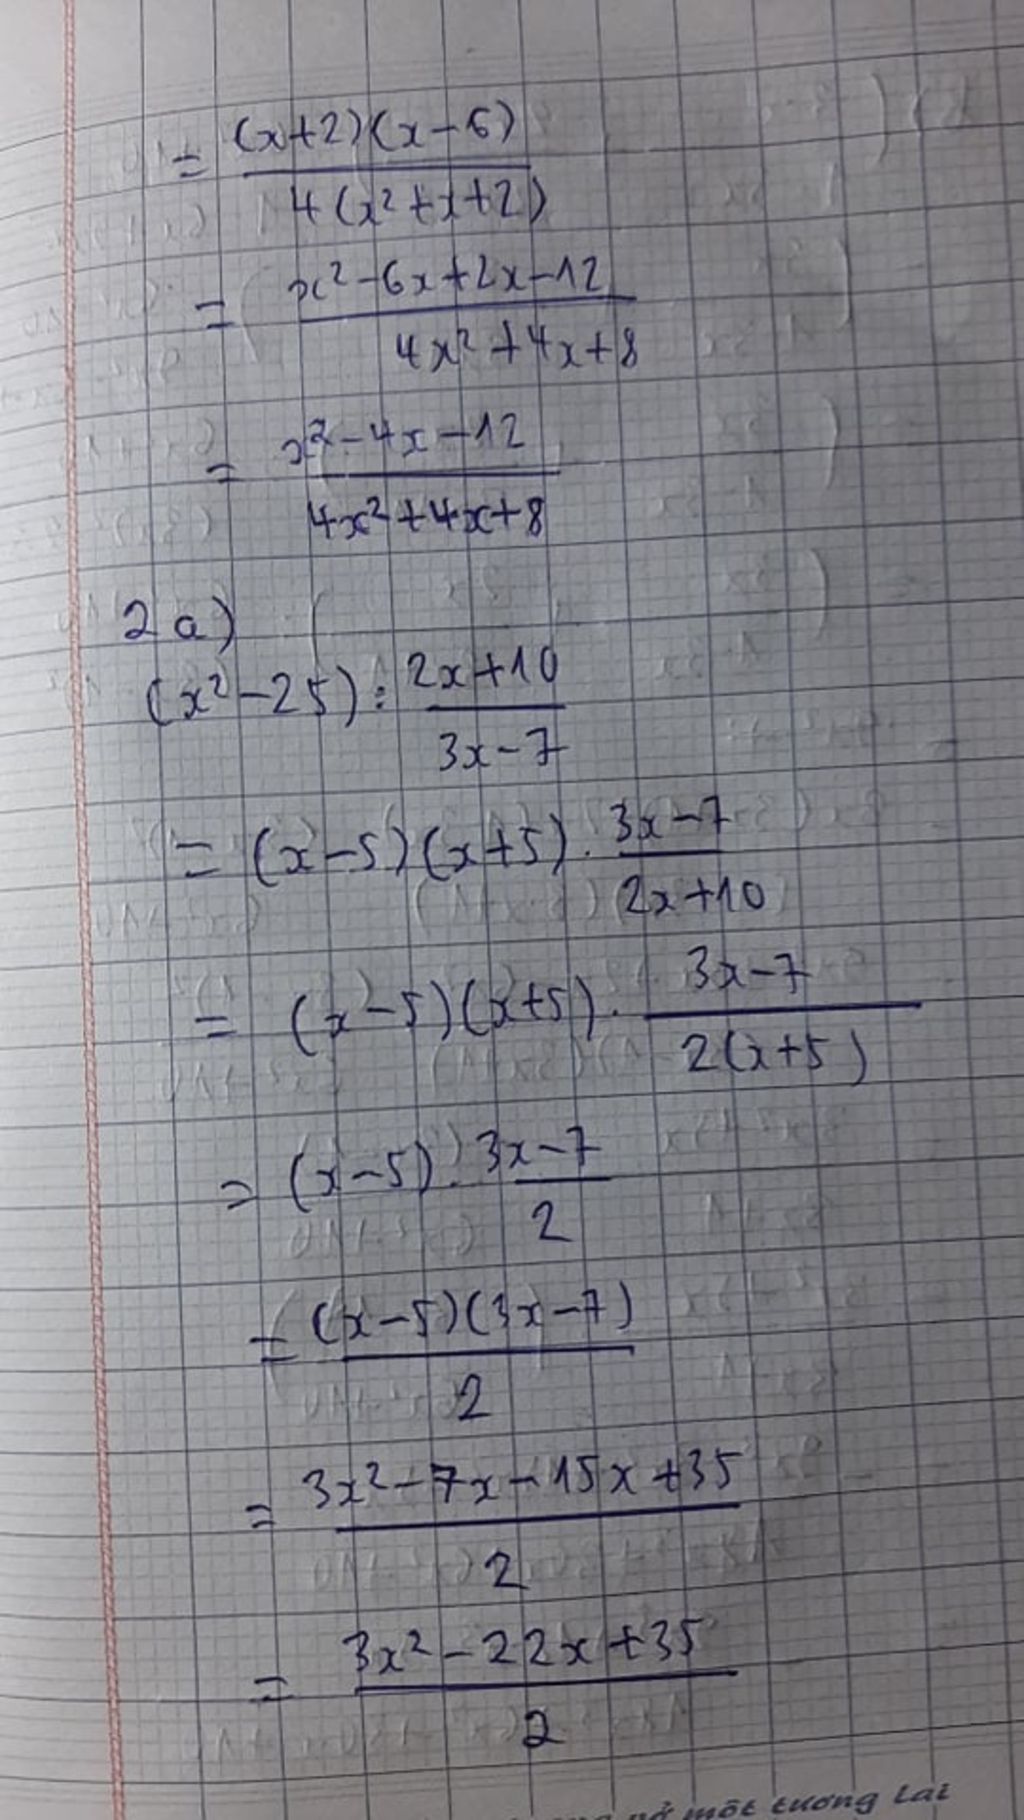 = (x+2)(x-6) / 4(x²+x+2)
= x²-6x+2x-12 / 4x²+4x+8
= x²-4x-12 / 4x²+4x+8
2a)
(x²-25): 2x+10 / 3x-7
= (x-5)(x+5). 3x-7 / 2x+10
= (x-5)(x+5). 3x-7 / 2(x+5)
= (x-5). 3x-7 / 2
= (x-5)(3x-7) / 2
= 3x²-7x-15x+35 / 2
= 3x²-22x+35 / 2
một tương lai